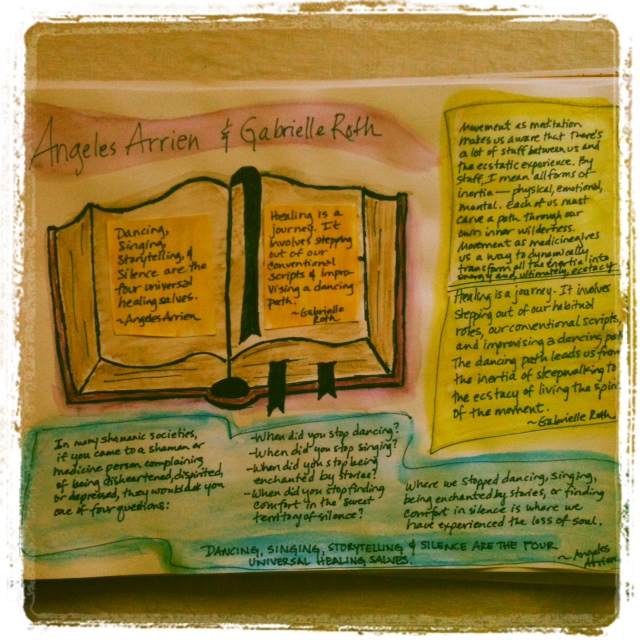 Angeles Arrien & Gabrielle Roth
Dancing,
Singing,
Storytelling, &
Silence are the
four universal
healing salves.
~Angeles Arrien
Healing is a
journey. It
involves stepping
out of our
conventional
scripts & impro-
vising a dancing
path.
~Gabrielle
Roth
Movement as meditation
makes us aware that there's
a lot of stuff between us and
the ecstatic experience. By
stuff, I mean all forms of
inertia — physical, emotional,
mental. Each of us must
carve a path through our
own inner wilderness.
Movement as medicine gives
us a way to dynamically
transform all the inertia into
energy and, ultimately, ecstacy.
Healing is a journey. It involves
stepping out of our habitual
roles, our conventional scripts,
and improvising a dancing path
The dancing path leads us from
the inertia of sleepwalking to
the ecstacy of living the spirit
of the moment.
~Gabrielle Roth
In many shamanic societies,
if you came to a shaman or
medicine person complaining
of being disheartened, dispirited,
or depressed, they would ask you
one of four questions:
-When did you stop dancing?
-When did you stop singing?
-When did you stop being
enchanted by stories?
-When did you stop finding
comfort in the sweet
territory of silence?
Where we stopped dancing, singing,
being enchanted by stories, or finding
comfort in silence is where we
have experienced the loss of soul.
DANCING, SINGING, STORYTELLING & SILENCE ARE THE FOUR
UNIVERSAL HEALING SALVES.
~Angeles
Arrien